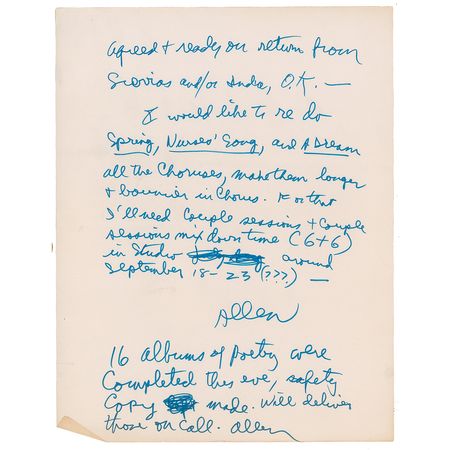 agreed & ready on return from
and/or India, O.K. —
I would like to re do
Spring, Nurses' Song, and A Dream
all the Choruses, make them longer
& bouncier in Chorus. For that
I'll need Couple sessions & Couple
sessions mix down time (6+6)
in Studio around
September 18-23 (???) —
Allen
16 albums of Poetry were
Completed this eve, safety
Copy made. Will deliver
those on call. Allen